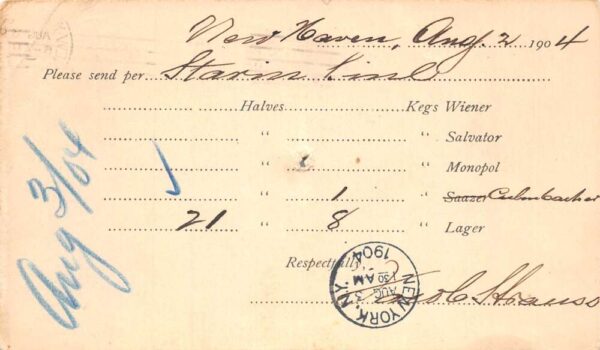 New Haven, Aug. 2 1904
Please send per Starin Line
Halves Kegs Wiener
" " Salvator
" 1 " Monopol
" 1 " Saazer Culmbacher
21 " 8 " Lager
Respectfully,
Jacob Strauss
NEW YORK, N.Y.
AUG 3
1 30 AM
1904
Aug 3/04